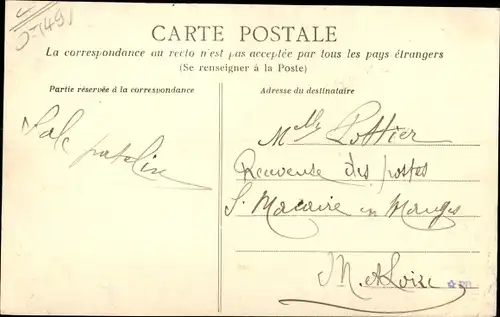 0-149
CARTE POSTALE
La correspondance au recto n'est pas acceptée par tous les pays étrangers
(Se renseigner à la Poste)
Partie réservée à la correspondance
Adresse du destinataire
Melle Pottier
Sale patelin
Receveuse des postes
St Macaire en Mauges
M. et Loire